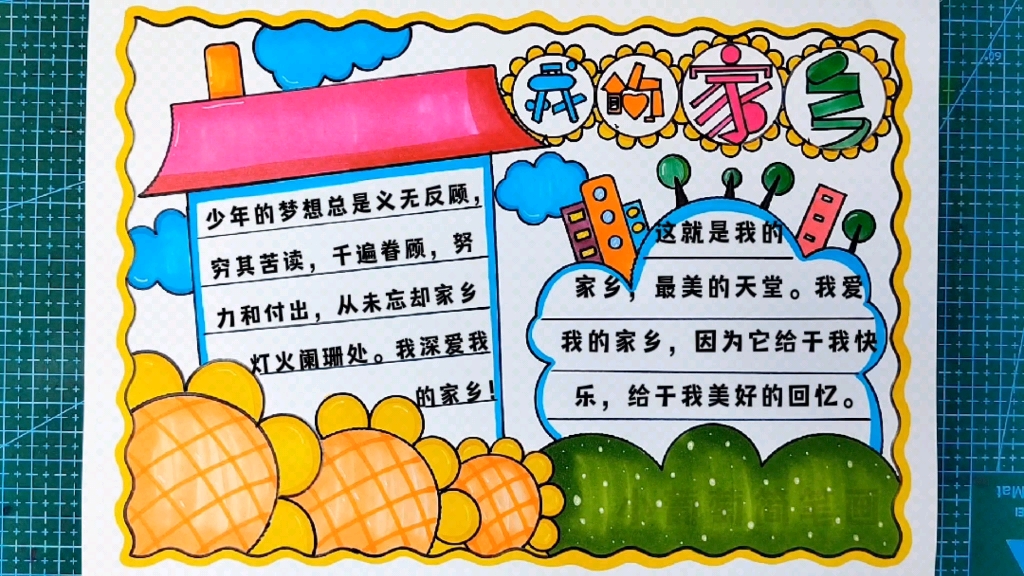 我的家乡
少年的梦想总是义无反顾，
穷其苦读，千遍眷顾，努
力和付出，从未忘却家乡
灯火阑珊处。我深爱我
的家乡！
这就是我的
家乡，最美的天堂。我爱
我的家乡，因为它给予我快
乐，给予我美好的回忆。